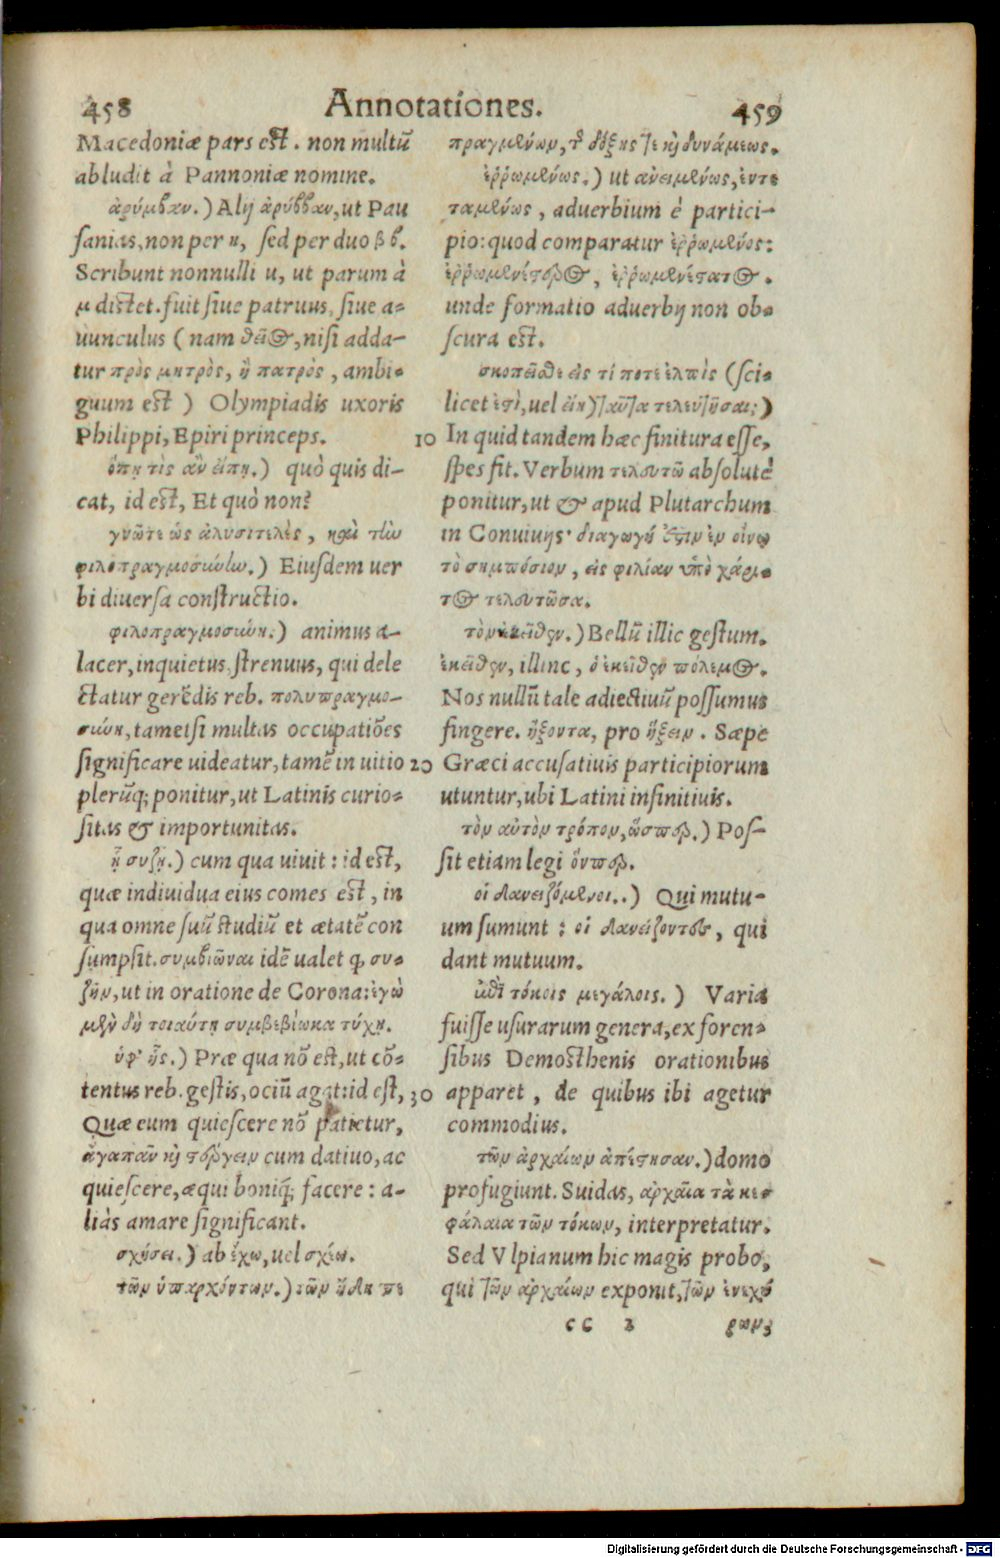 458 Annotationes. 459
Macedoniæ pars est. non multũ
abludit à Pannoniæ nomine.
ἀρύμβαν.) Alij ἀρύββαν, ut Pau
sanias, non per η, sed per duo β β.
Scribunt nonnulli u, ut parum à
μ distet. fuit siue patruus, siue a-
uunculus (nam θεῖος, nisi adda-
tur πρὸς μητρὸς, ἢ πατρὸς, ambi-
guum est) Olympiadis uxoris
Philippi, Epiri princeps.
ὅπῃ τὶς ἂν εἴπῃ.) quò quis di-
cat, id est, Et quò non?
γνῶτε ὡς ἀλυσιτελὲς, καὶ τὴν
φιλοπραγμοσύνην.) Eiusdem uer
bi diuersa constructio.
φιλοπραγμοσύνη.) animus a-
lacer, inquietus, strenuus, qui dele
ctatur gerẽdis reb. πολυπραγμο-
σύνη, tametsi multas occupatiões
significare uideatur, tamẽ in uitio
plerũq; ponitur, ut Latinis curio-
sitas & importunitas.
ᾗ συζῇ.) cum qua uiuit: id est,
quæ indiuidua eius comes est, in
qua omne suũ studiũ et ætatẽ con
sumpsit. συμβιῶναι idẽ ualet q̃ συ-
ζῆν, ut in oratione de Corona: ἐγὼ
μὲν δὴ τοιαύτῃ συμβεβίωκα τύχῃ.
ὑφ' ἧς.) Præ qua nõ est, ut cõ-
tentus reb. gestis, ociũ agat: id est,
Quæ eum quiescere nõ patietur,
ἀγαπᾶν καὶ στέργειν cum datiuo, ac
quiescere, æqui boniq́; facere: a-
liàs amare significant.
σχήσει.) ab ἔχω, uel σχέω.
τῶν ὑπαρχόντων.) τῶν ἤδη πε
πραγμένων, τῆς δόξης τε καὶ δυνάμεως.
ἐῤῥωμένως.) ut ἀνειμένως, ἐντε
ταμένως, aduerbium è partici-
pio: quod comparatur ἐῤῥωμένος:
ἐῤῥωμενέστερος, ἐῤῥωμενέστατος.
unde formatio aduerbij non ob-
scura est.
σκοπεῖσθε εἰς τί ποτε ἐλπὶς (sci-
licet ἐστὶ, uel εἴη) ταῦτα τελευτῆσαι;)
10 In quid tandem hæc finitura esse,
spes sit. Verbum τελευτῶ absolutè
ponitur, ut & apud Plutarchum
in Conuiuijs· διαγωγή ἐστιν ἐν οἴνῳ
τὸ συμπόσιον, εἰς φιλίαν ὑπὸ χάρι-
τος τελευτῶσα.
τὸν ἐκεῖθεν.) Bellũ illic gestum.
ἐκεῖθεν, illinc, ὁ ἐκεῖθεν πόλεμος.
Nos nullũ tale adiectiuũ possumus
fingere. ἥξοντα, pro ἥξειν. Sæpe
20 Græci accusatiuis participiorum
utuntur, ubi Latini infinitiuis.
τὸν αὐτὸν τρόπον, ὥσπερ.) Pos-
sit etiam legi ὅνπερ.
οἱ δανειζόμενοι..) Qui mutu-
um sumunt: οἱ δανείζοντες, qui
dant mutuum.
ἐπὶ τόκοις μεγάλοις.) Varia
fuisse usurarum genera, ex foren-
sibus Demosthenis orationibus
30 apparet, de quibus ibi agetur
commodius.
τῶν ἀρχαίων ἀπέστησαν.) domo
profugiunt. Suidas, ἀρχαῖα τὰ κε-
φάλαια τῶν τόκων, interpretatur.
Sed Vlpianum hic magis probo,
qui τῶν ἀρχαίων exponit, τῶν ἐνεχύ
cc 2 ρων;
Digitalisierung gefördert durch die Deutsche Forschungsgemeinschaft - DFG